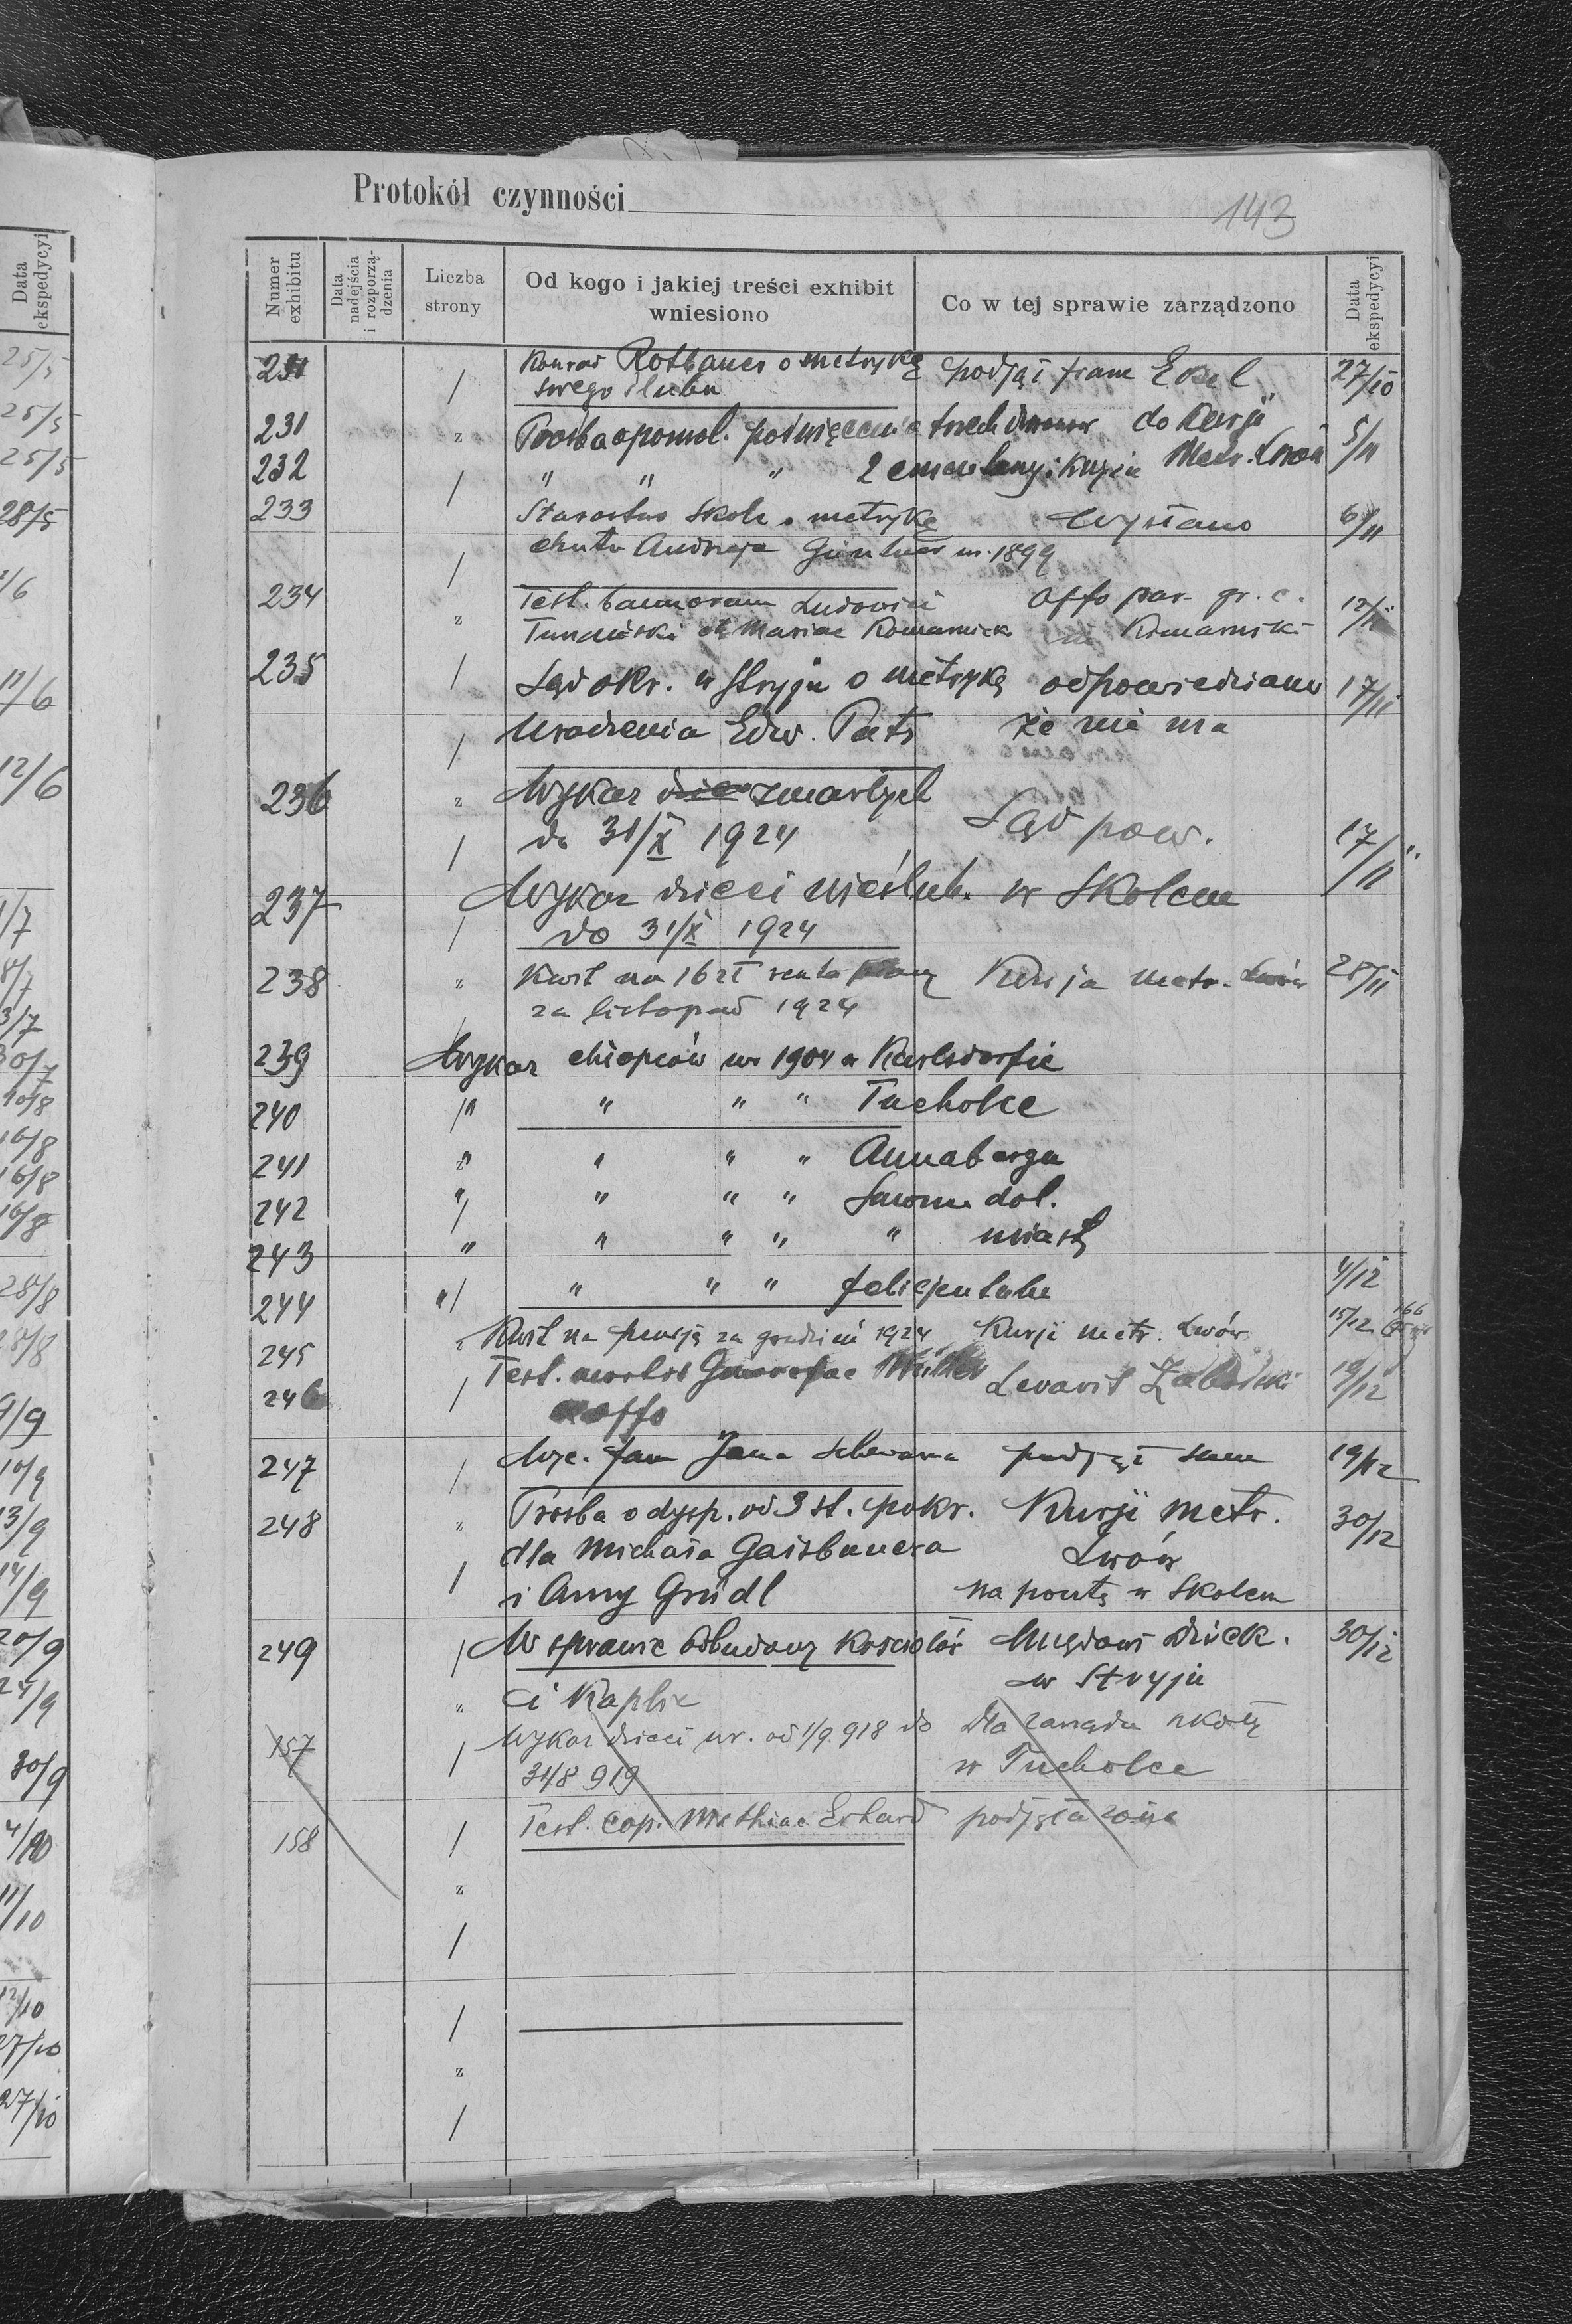 Protokół czynności
143
Data ekspedycyi
Numer exhibitu
Data nadejścia i rozporzą-dzenia
Liczba strony
Od kogo i jakiej treści exhibit wniesiono
Co w tej sprawie zarządzono
Data ekspedycyi
25/5
25/5
25/5
28/5
11/6
12/6
30/7
10/8
16/8
16/8
16/8
28/8
28/8
9/9
10/9
13/9
14/9
20/9
24/9
30/9
4/10
11/10
12/10
27/10
27/10
Konrad Rotbauer o metrykę podjął fram 27/10
swego ślubu
231 Prośba o pozwol. poświęcenia trzech dzwonów do Kurji 5/11
232 " " " 2 cmentarzy i krzyża Metr. Lwów
233 Starostwo Skole o metrykę wysłano 6/11
chrztu Andrzeja Güntner ur. 1899
234 Test. bannorum Ludovici offo par. gr. c. 12/11
et Mariae Romanick
235 Sąd okr. w Stryju o metrykę odpowiedziano 17/11
urodzenia Edw. Pats że nie ma
236 Wykaz zmarłych
do 31/X 1924 Sąd pow. 17/11
237 Wykaz dzieci nieślub. w Skolem
do 31/X 1924
238 Kwit na 16 zł za Kurja metr. Lwów 28/11
za listopad 1924
239 Wykaz chłopców ur 1904 w Karlsdorfie
240 " " " " Tucholce
241 " " " " Annabergu
242 " " " " Sławsku dol.
243 " " " " " miasto
244 " " " " Felicjentalu 4/12
245 Kwit na pensję za grudzień 1924 Kurji metr. Lwów 15/12 166
246 Test. mortis Levavit 19/12
offo
247 Wyc. fam Jana Schwarza podjął sam 19/12
248 Prośba o dysp. od 3 st. pokr. Kurji metr. 30/12
dla Michała Gaisbauera Lwów
i Anny Gründl na pocztę w Skolem
249 W sprawie odbudowy kościołów Urzędowi dziek. 30/12
i Kaplic w Stryju
157 Wykaz dzieci ur. od 1/9 918 do Dla zarządu szkoły
31/8 919 w Tucholce
158 Test. cop. Mathiae Erhard podjęła żona